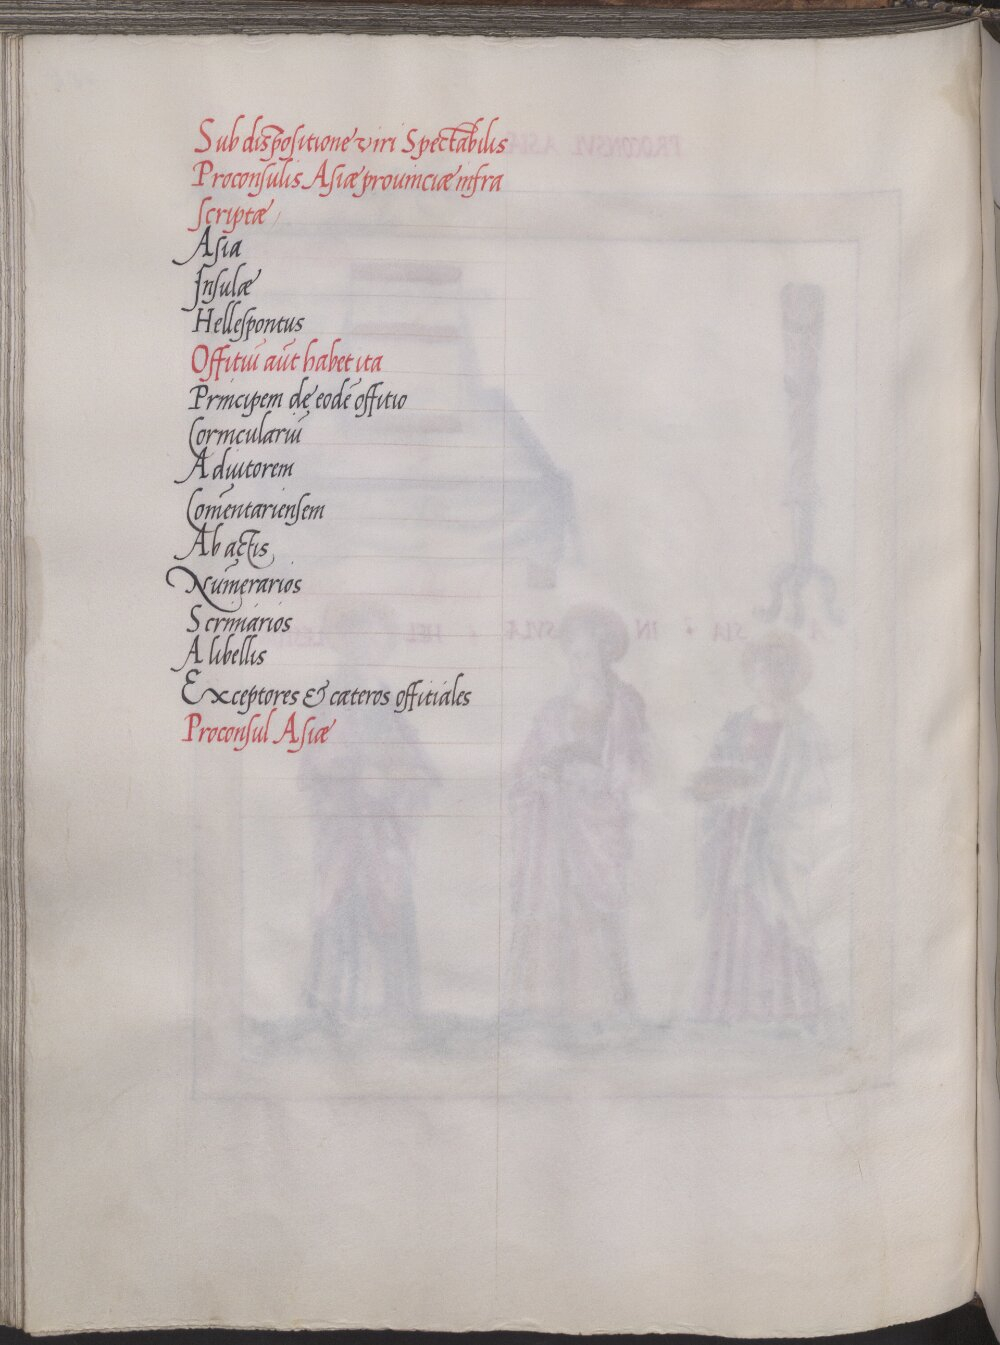 Sub dispositione viri Spectabilis
Proconsulis Asiæ prouinciæ infra
scriptæ
Asia
Insulæ
Hellespontus
Offitiū aūt habet ita
Principem de eodē offitio
Corniculariū
Adiutorem
Com̄entariensem
Ab actis
Num̄erarios
Scrinιarios
A libellis
Exceptores & cateros offitiales
Proconsul Asiæ